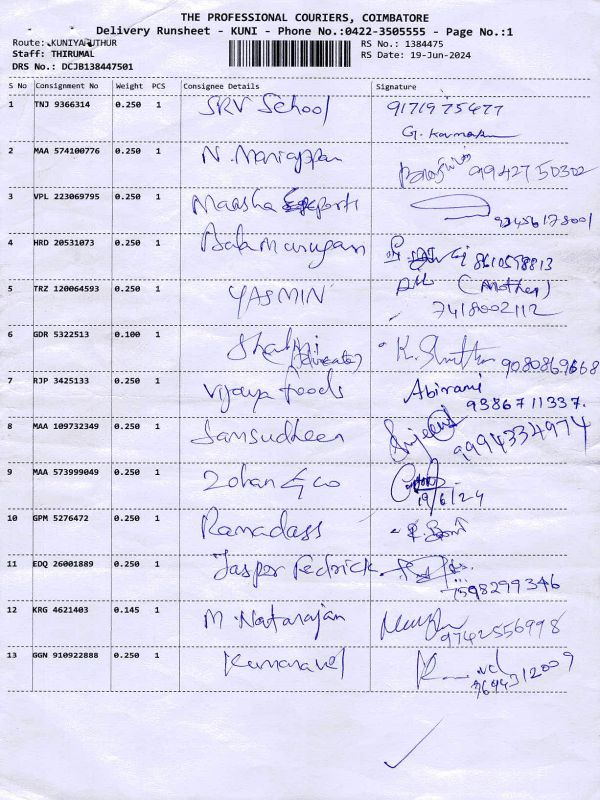 THE PROFESSIONAL COURIERS, COIMBATORE
Delivery Runsheet - KUNI - Phone No.:0422-3505555 - Page No.:1
Route: KUNIYAMUTHUR RS No.: 1384475
Staff: THIRUMAL RS Date: 19-Jun-2024
DRS No.: DCJB138447501
S No Consignment No Weight PCS Consignee Details Signature
1 TNJ 9366314 0.250 1 SRV School 9171975477
2 MAA 574100776 0.250 1 N. Mariappan 9942750302
3 VPL 223069795 0.250 1 Maasha Exports
4 HRD 20531073 0.250 1 Balamurugan 8610598813
5 TRZ 120064593 0.250 1 YASMIN (Mother)
7418002112
6 GDR 5322513 0.100 1 Shakthi 9080869668
(Advocate)
7 RJP 3425133 0.250 1 Vijaya foods Abirami
9386711337.
8 MAA 109732349 0.250 1 Samsudheen 9994334974
9 MAA 573999049 0.250 1 Zohan & co
19/6/24
10 GPM 5276472 0.250 1 Ramadass
11 EDQ 26001889 0.250 1 Jasper Fedrick
7598299346
12 KRG 4621403 0.145 1 M. Natarajan
9742556998
13 GGN 910922888 0.250 1 Kumaravel